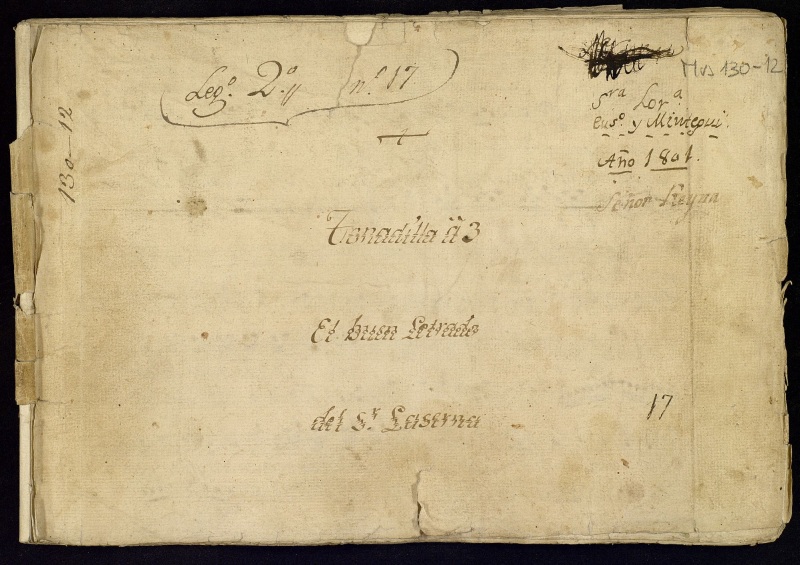 Leg.º 2.º nº 17
Mus 130-12
Sra Lor.a
Eus.º y Mintegui.
Año 1801.
Señor Reyna
130-12
Tonadilla à 3
El buen Letrado
del Sr. Laserna
17